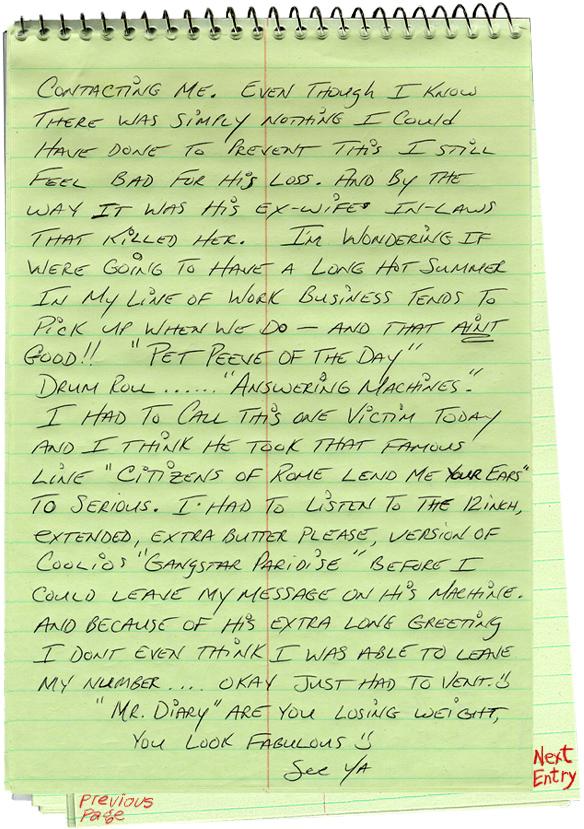 CONTACTING ME. EVEN THOUGH I KNOW
THERE WAS SIMPLY NOTHING I COULD
HAVE DONE TO PREVENT THIS I STILL
FEEL BAD FOR HIS LOSS. AND BY THE
WAY IT WAS HIS EX-WIFE' IN-LAWS
THAT KILLED HER. I'M WONDERING IF
WERE GOING TO HAVE A LONG HOT SUMMER
IN MY LINE OF WORK BUSINESS TENDS TO
PICK UP WHEN WE DO — AND THAT AINT
GOOD!! "PET PEEVE OF THE DAY"
DRUM ROLL ...... "ANSWERING MACHINES".
I HAD TO CALL THIS ONE VICTIM TODAY
AND I THINK HE TOOK THAT FAMOUS
LINE "CITIZENS OF ROME LEND ME YOUR EARS"
TO SERIOUS. I HAD TO LISTEN TO THE 12 INCH,
EXTENDED, EXTRA BUTTER PLEASE, VERSION OF
COOLIOS "GANGSTAR PARIDISE" BEFORE I
COULD LEAVE MY MESSAGE ON HIS MACHINE.
AND BECAUSE OF HIS EXTRA LONG GREETING
I DONT EVEN THINK I WAS ABLE TO LEAVE
MY NUMBER .... OKAY JUST HAD TO VENT.
"MR. DIARY" ARE YOU LOSING WEIGHT,
YOU LOOK FABULOUS
See YA
Next
Entry
Previous
Page